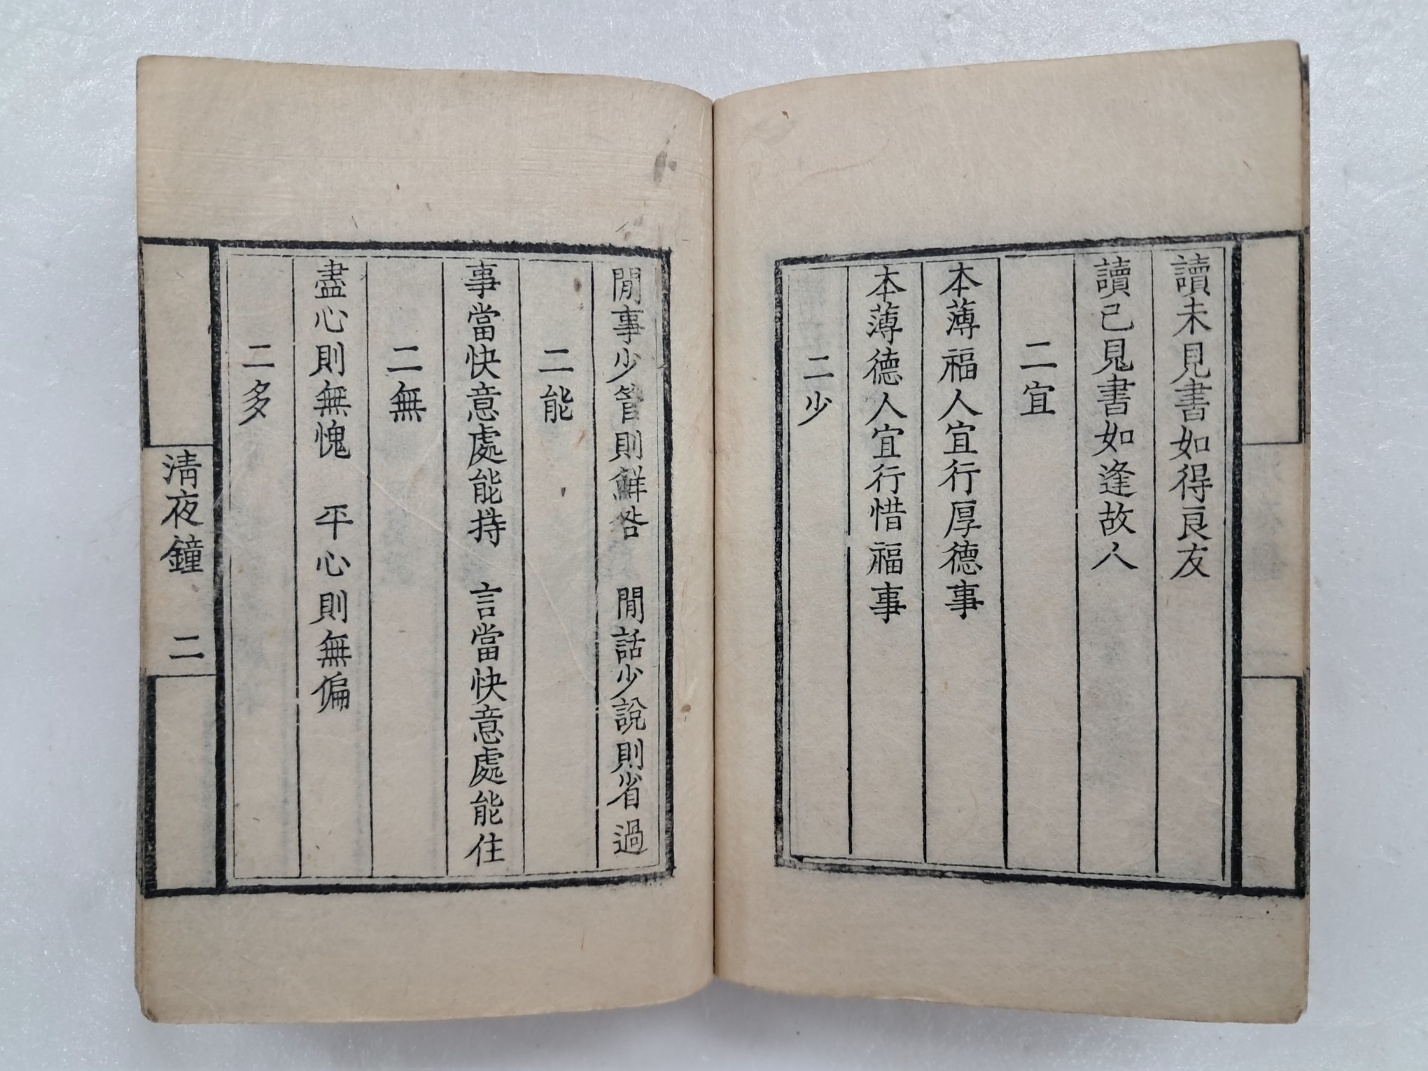 讀未見書如得良友
讀已見書如逢故人
二宜
本薄福人宜行厚德事
本薄德人宜行惜福事
二少
閒事少管則鮮咎　閒話少說則省過
二能
事當快意處能持　言當快意處能住
二無
盡心則無愧　平心則無偏
二多
清夜鐘　二